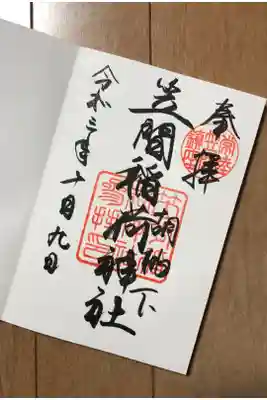 奉拝
胡桃下
笠間稲荷神社
令和三年十月九日